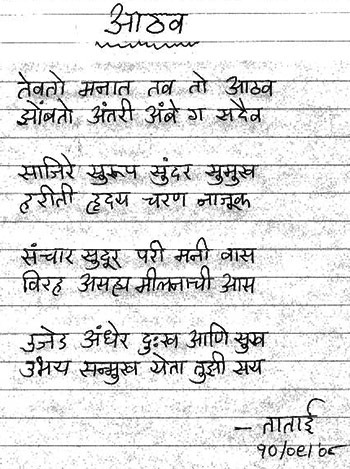 आठव
तेवतो मनात तव तो आठव
झोंबतो अंतरी अंबे ग सदैव
साजिरे सुरूप सुंदर सुमुख
हरीती हृदय चरण नाजूक
संचार सुदूर परी मनी वास
विरह असह्य मीलनाची आस
उजेड अंधेर दुःख आणि सुख
उभय सन्मुख येता तुझी सय
– ताताई
१०/०९/०८